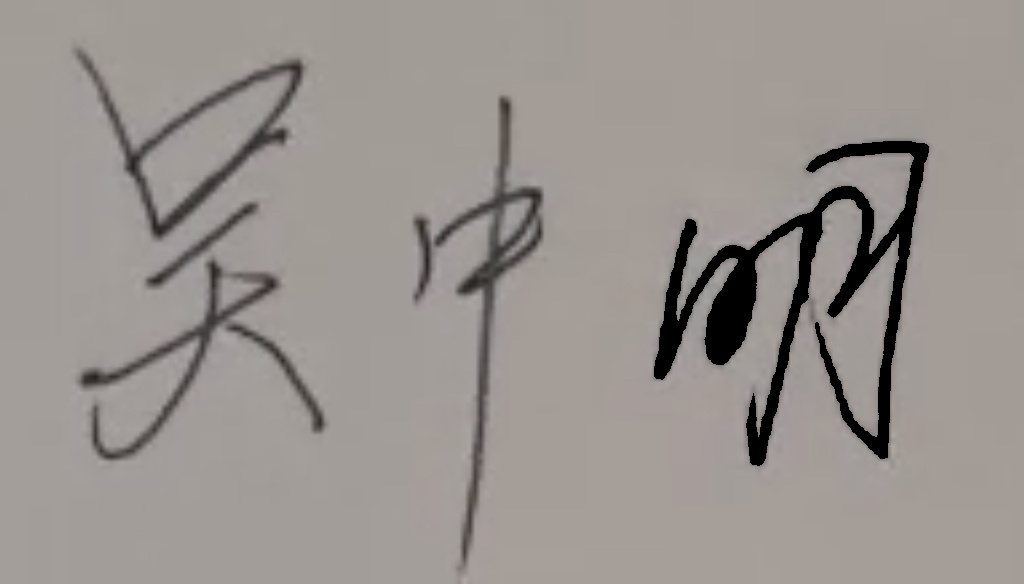 吴中明